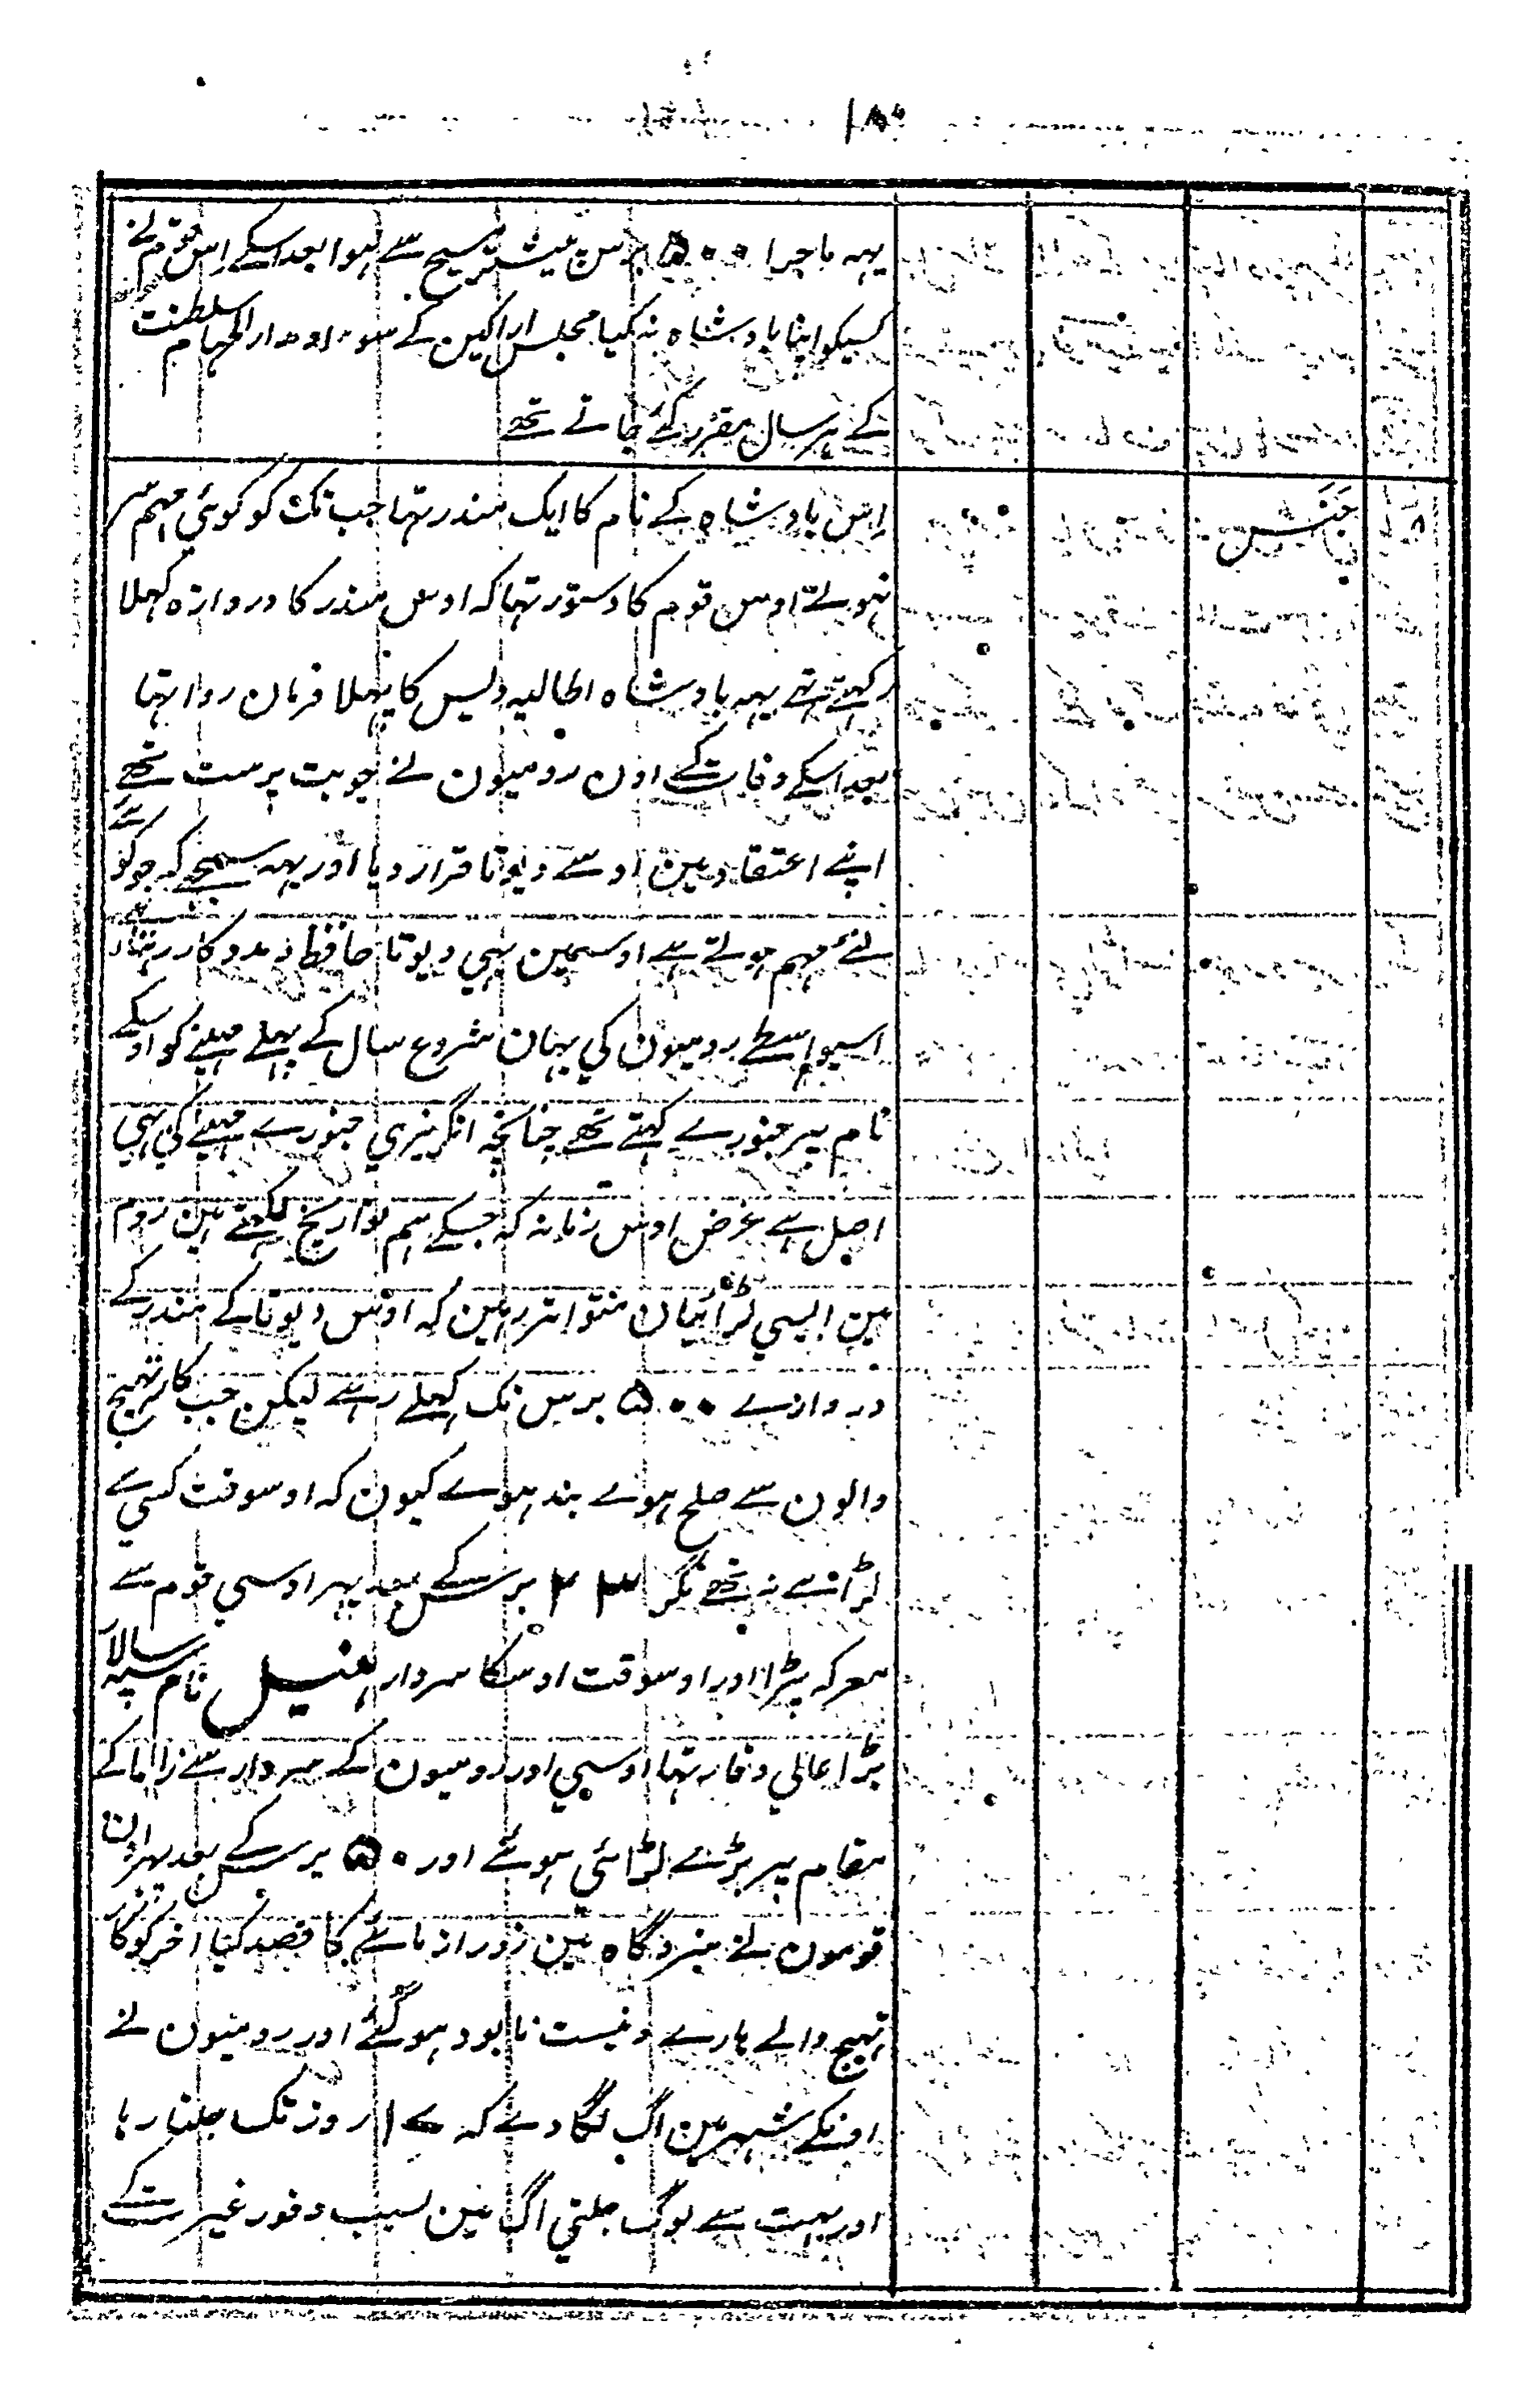 ۱۸۰
یہہ ماجرا ۵۰۰ برس پیشتر مسیح سے ہوا بعد اسکے اس قوم نے
کسیکو اپنا بادشاہ نہ کیا مجلس اراکین کے سو مدار المہام سلطنت
کے ہر سال مقرر کئے جاتے تھے
جَنَس
اس بادشاہ کے نام کا ایک مندر تہا جب تک کو کوئی مہم سر
نہولے اوس قوم کا دستور تہا کہ اوس مندر کا دروازہ کہلا
رکہتے تہے یہہ بادشاہ اطالیہ دیس کا پہلا فرمان روا تہا
بعد اسکے وفات کے اون رومیون نے جو بت پرست تھے
اپنے اعتقاد مین اوسے دیوتا قرار دیا اور یہہ سمجھے کہ جو کو
لئے مہم ہوتے ہے اوسمین یہی دیوتا حافظ و مددگار رہتا
اسیواسطے رومیون کی یہان شروع سال کے پہلے مہینے کو اوسکے
نام پر جنورے کہتے تھے چنانچہ انگریزی جنورے مہینے کی یہی
اصل ہے غرض اوس زمانہ کہ جسکے ہم تواریخ لکہتے ہین روم
مین ایسی لڑائیان متواتر رہین کہ اوس دیوتا کے مندر کے
دروازے ۵۰۰ برس تک کہلے رہے لیکن جب کارتہیج
والون سے صلح ہوے بند ہوے کیون کہ اوسوقت کسی سے
لڑائے نہ تھے مگر ۲۳ برس کے بعد پہر اوسی قوم سے
معرکہ پڑا اور اوسوقت اوسکا سردار ہنیبل نام سپہ سالار
بڑا عالی وقار تہا اوسی اور رومیون کے سردار سے زاما کے
مقام پر بڑے لڑائی ہوئے اور ۵۰ برس کے بعد پہر ان
قومون نے نبردگاہ مین زور ازمائے کا قصد کیا اخر کو کارتہیج
تہیج والے ہارے و نیست نابود ہو گئے اور رومیون نے
اونکے شہر مین اگ لگا دے کہ ۱۷ روز تک جلتا رہا
اور بہت سے لوگ جلتی اگ مین بسبب وفور غیرت کے